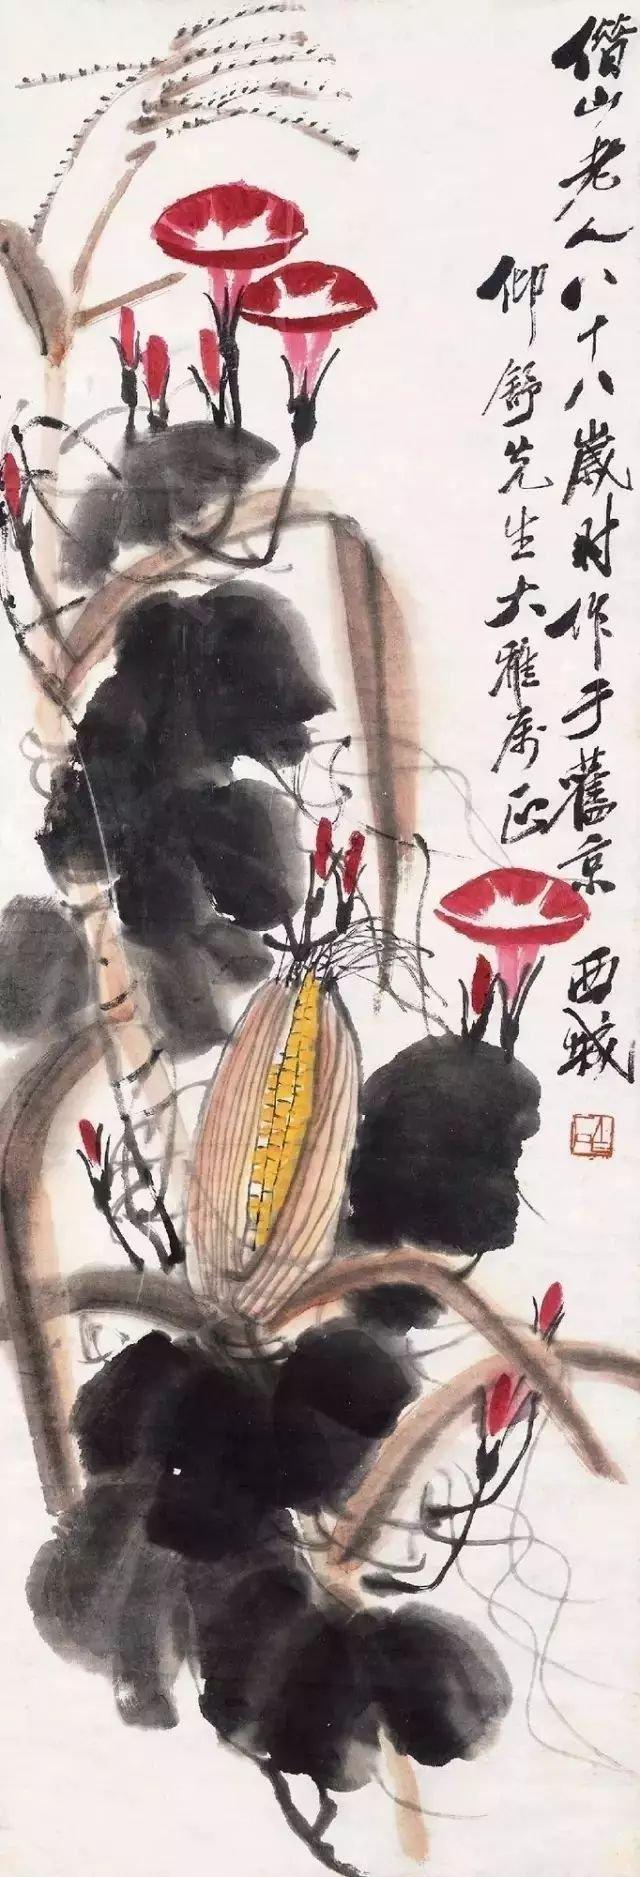 借山老人八十八歲时作于舊京西城
仰舒先生大雅属正